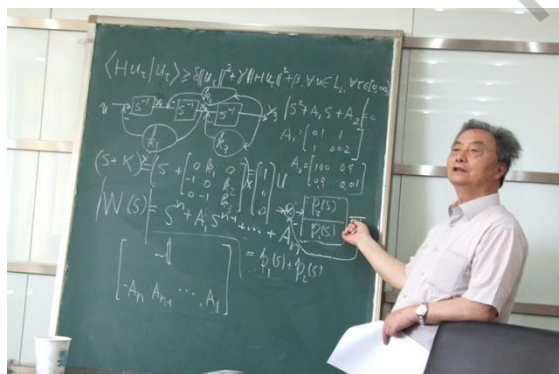 ⟨Hu_τ|u_τ⟩ ≥ δ‖u_τ‖²+γ‖Hu_τ‖²+β, ∀u∈L₂, ∀τ∈[0,∞)
u S⁻¹ S⁻¹ S⁻¹ y |S²+A₁S+A₂|=0
k₁ k₂
A₁=[0.1 1
1 0.02]
A₂=[100 0.9
0.9 0.01]
(S+K)x=(S+[0 k₁ 0
-1 0 k₂
0 -1 k₃])x=[1
0
0]u
W(S)=Sⁿ+A₁Sⁿ⁻¹+⋯+Aₙ
P₂(S)
P₁(S)
=p₁(S)+p₂(S)
[-I
-Aₙ Aₙ₋₁ ⋯, A₁]